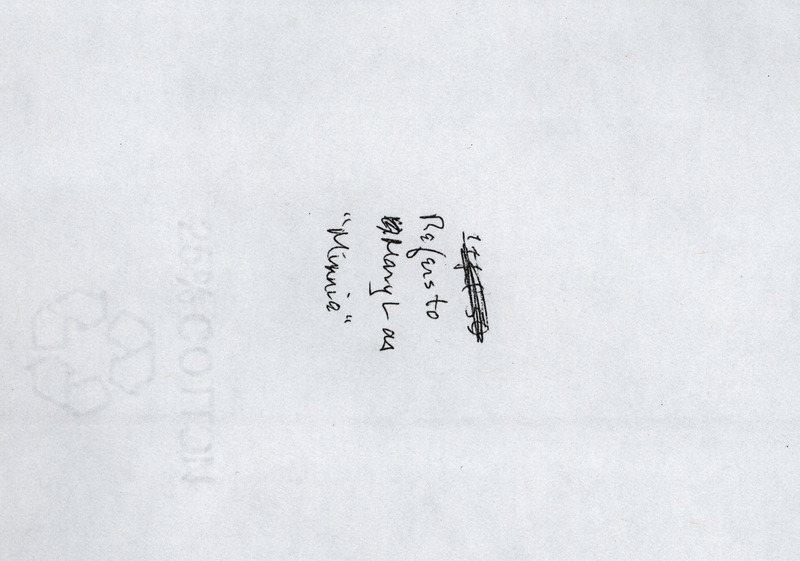 Refers to
Mary L as
"Minnie"
25% COTTON